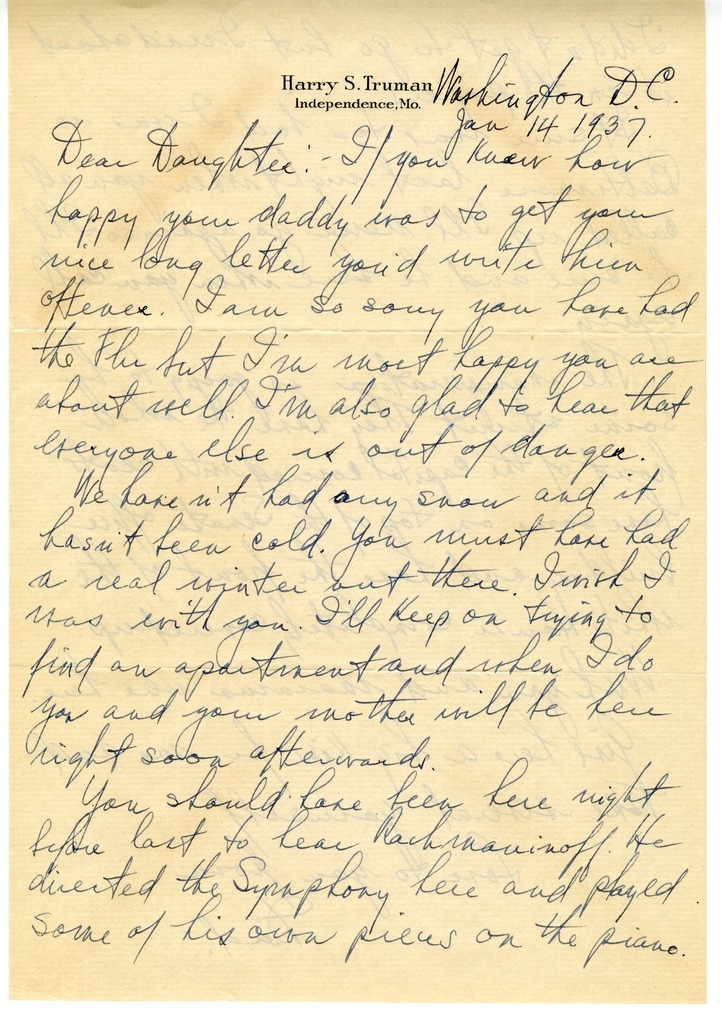 Harry S. Truman
Independence, Mo.
Washington D.C.
Jan 14 1937.
Dear Daughter:- If you knew how
happy your daddy was to get your
nice long letter you'd write him
oftener. I am so sorry you have had
the Flu but I'm most happy you are
about well. I'm also glad to hear that
everyone else is out of danger.
We haven't had any snow and it
hasn't been cold. You must have had
a real winter out there. I wish I
was with you. I'll keep on trying to
find an apartment and when I do
you and your mother will be here
right soon afterwards.
You should have been here night
before last to hear Rachmaninoff. He
directed the Symphony here and played
some of his own pieces on the piano.